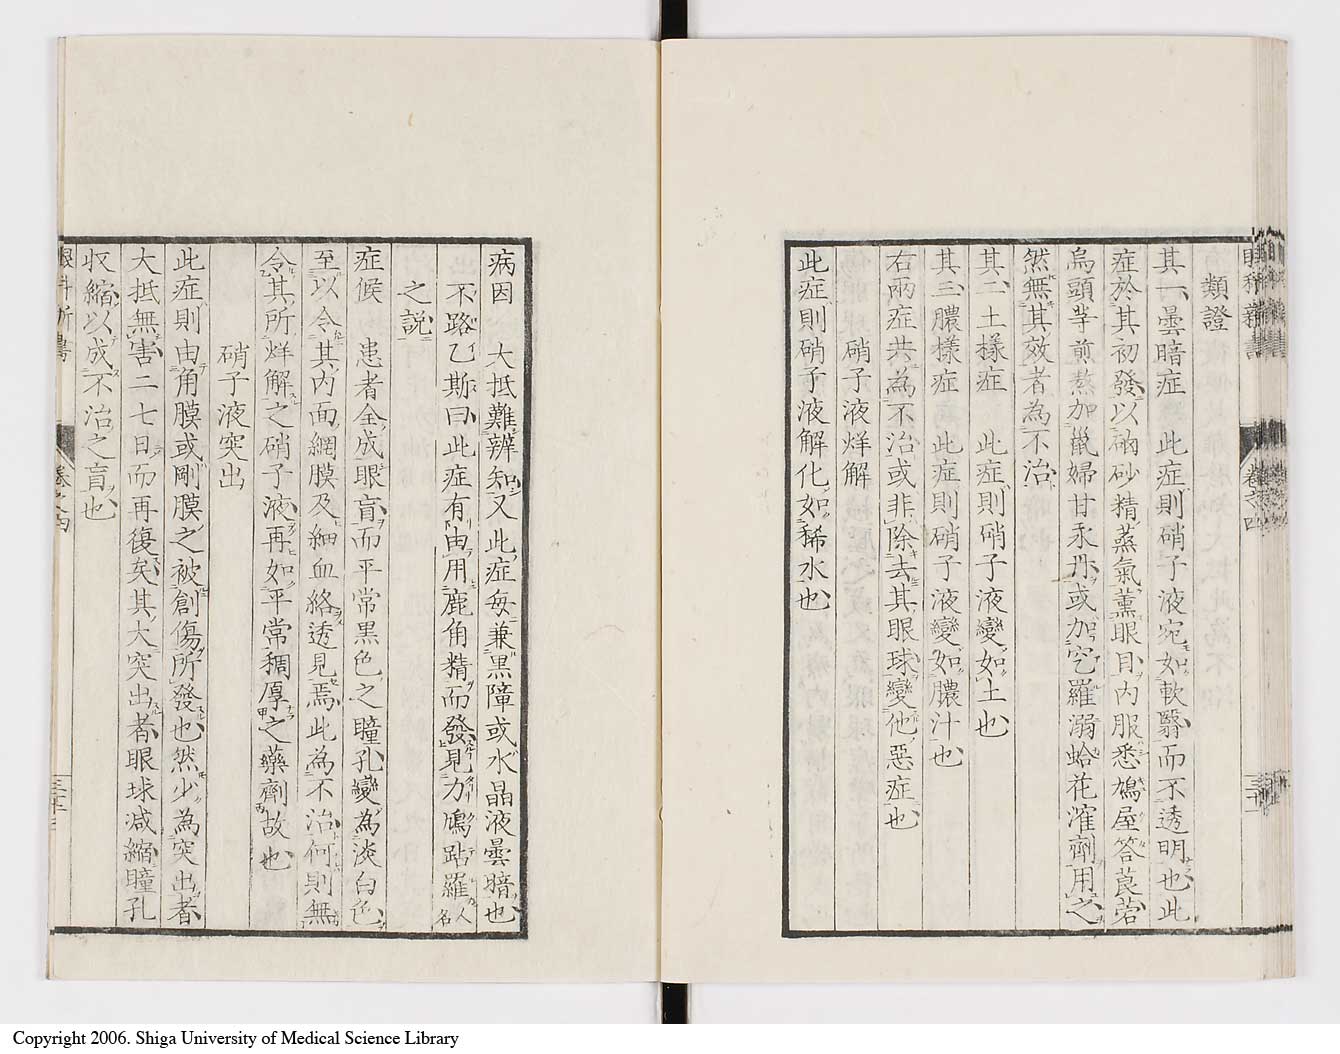 類證
其一、曇暗症　此症則硝子液宛如軟翳而不透明也此
症於其初發以硇砂精蒸氣薰眼目內服悉鳩屋答莨菪
烏頭等煎熬加鼴婦甘汞丹或加羅溺蛤花滻劑用之
然無其效者為不治
其二、土樣症　此症則硝子液變如土也
其三、膿樣症　此症則硝子液變如膿汁也
右兩症共為不治或非除去其眼球變他惡症也
硝子液烊解
此症則硝子液解化如稀水也
病因　大抵難辨知又此症每兼黑障或水晶液曇暗也
不路乙斯曰此症有由用鹿角精而發見力鳩跕羅人名
之說
症候　患者全成眼盲而平常黑色之瞳孔變為淡白色
至以令其內面網膜及細血絡透見焉此為不治何則無
令其所烊解之硝子液再如平常稠厚之藥劑故也
硝子液突出
此症則由角膜或剛膜之被創傷所發也然少為突出者
大抵無害二七日而再復矣其大突出者眼球減縮瞳孔
收縮以成不治之盲也
卷之四
三十一
Copyright 2006. Shiga University of Medical Science Library